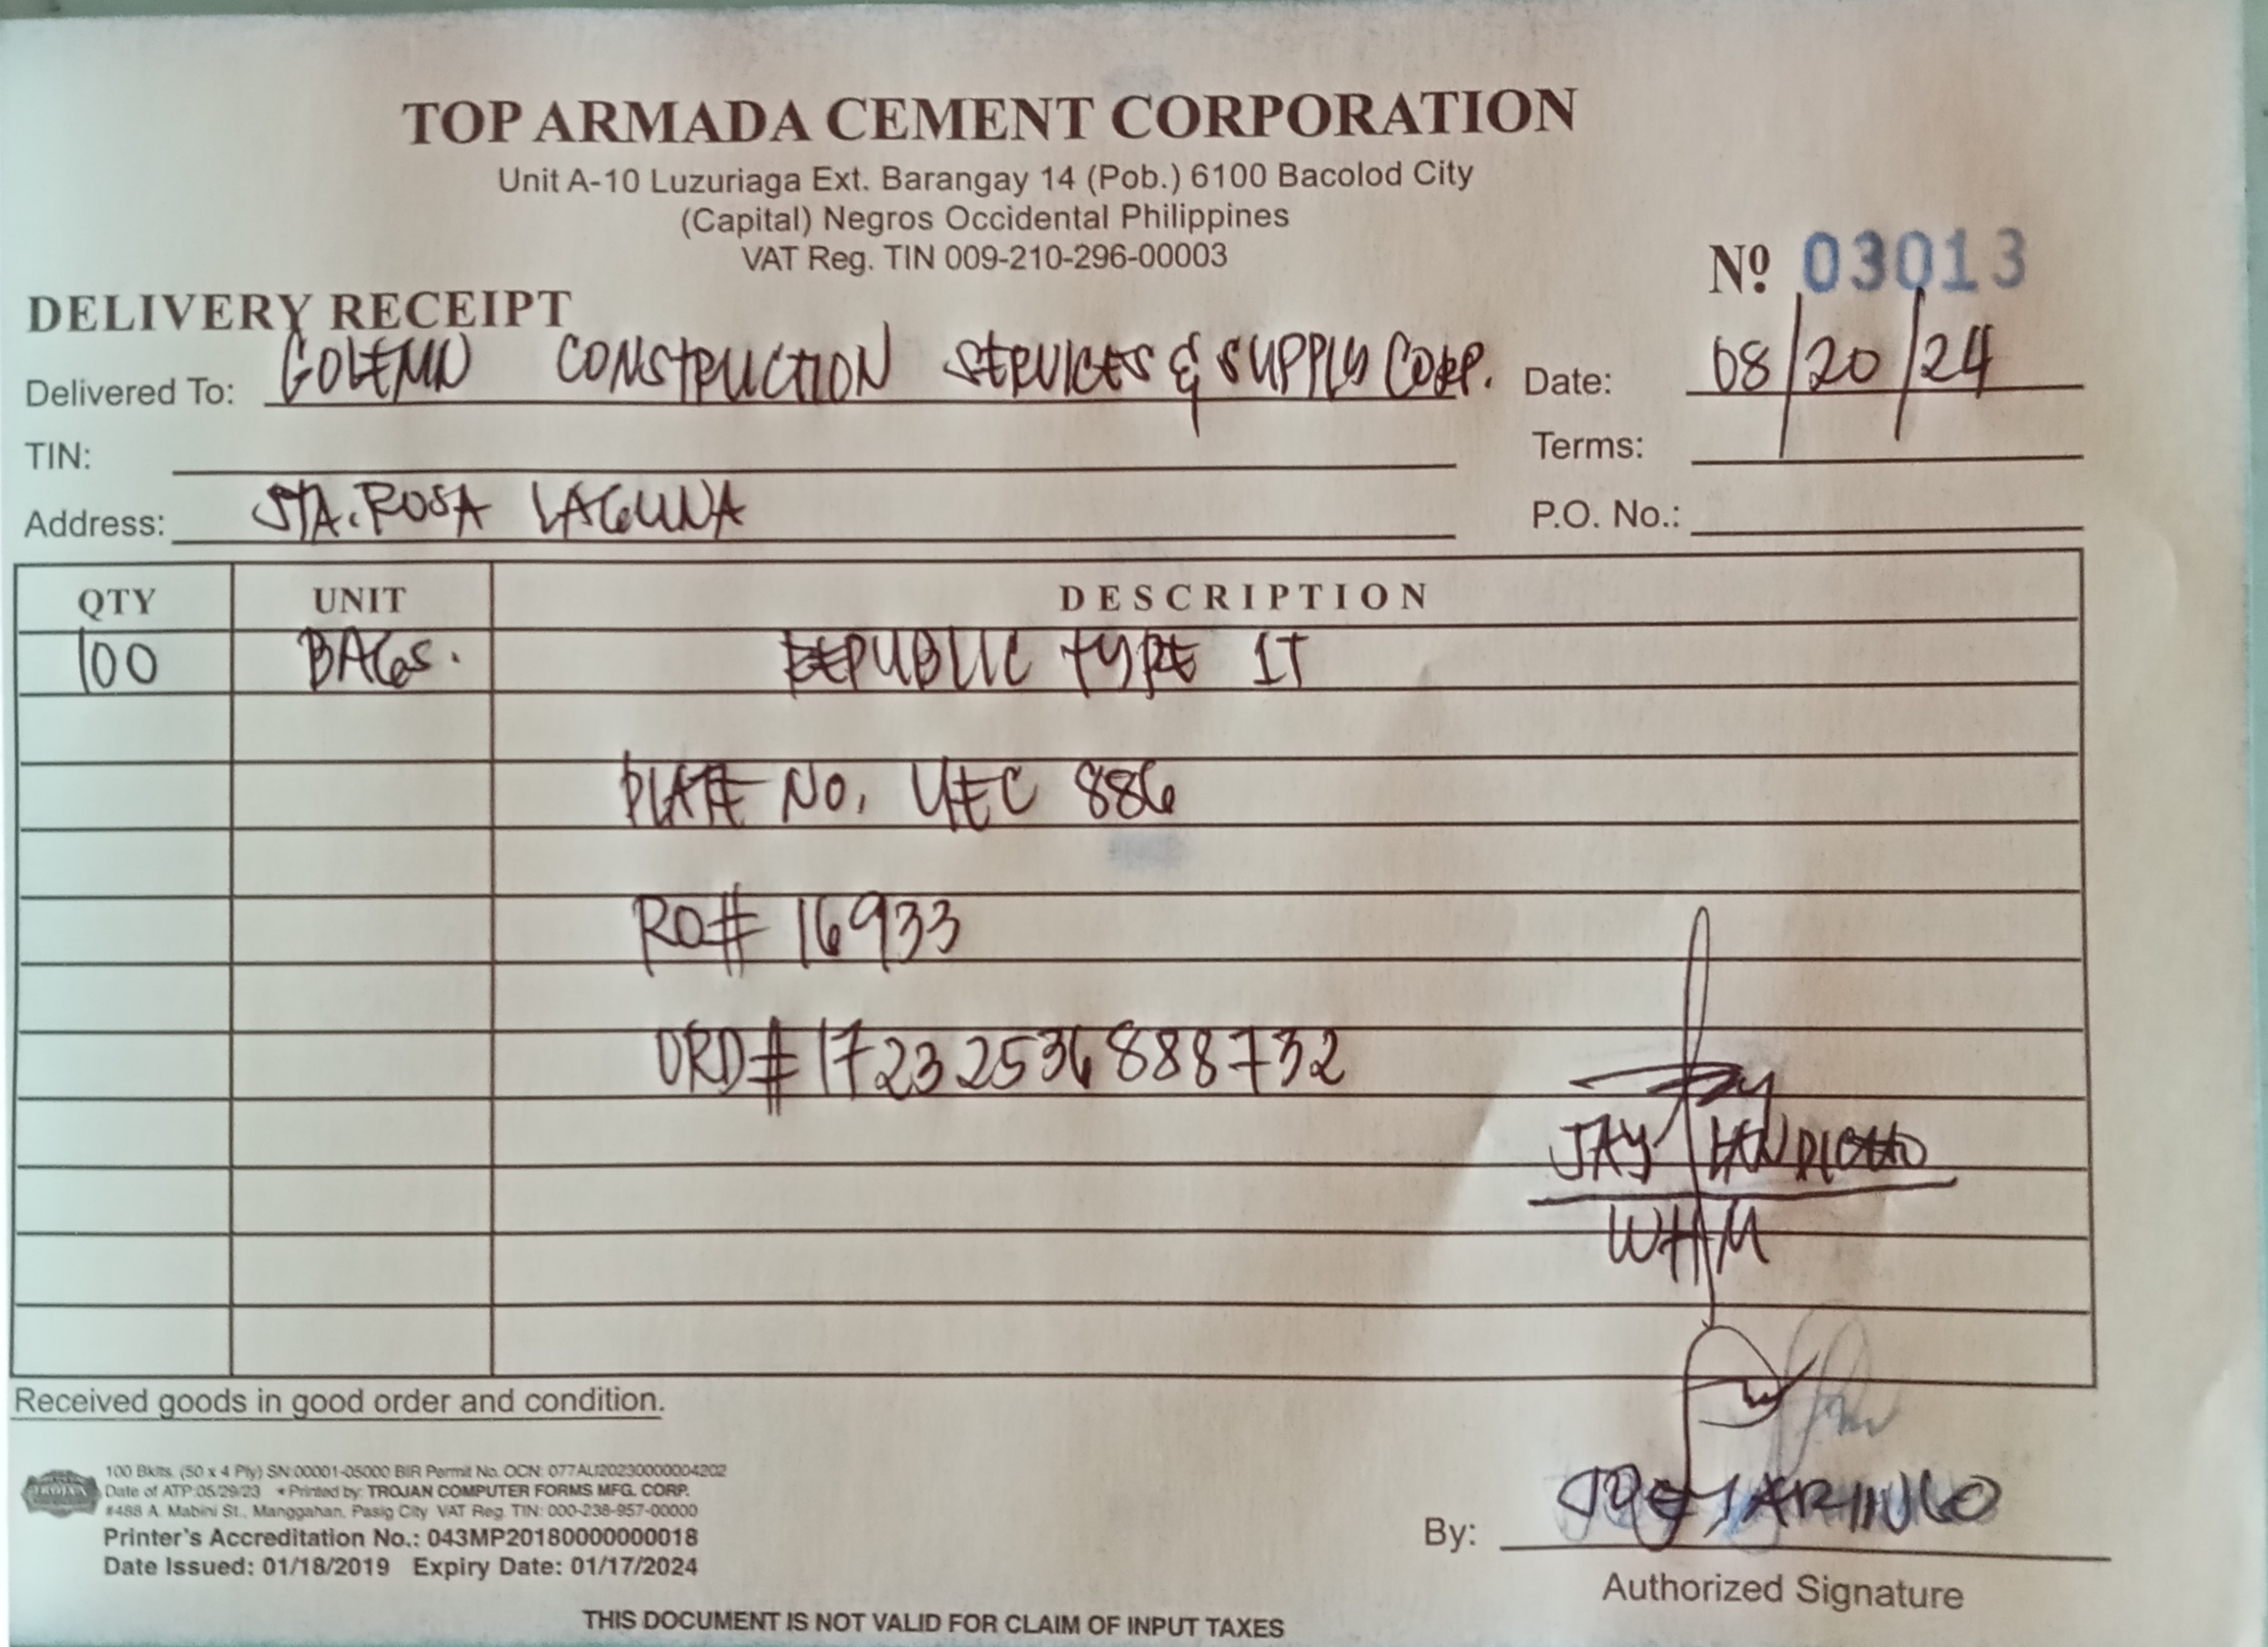 TOP ARMADA CEMENT CORPORATION
Unit A-10 Luzuriaga Ext. Barangay 14 (Pob.) 6100 Bacolod City
(Capital) Negros Occidental Philippines
VAT Reg. TIN 009-210-296-00003
Nº 03013
DELIVERY RECEIPT
Delivered To: GOLEMN CONSTRUCTION SERVICES & SUPPLY CORP. Date: 08/20/24
TIN: Terms:
Address: STA. ROSA LAGUNA P.O. No.:
QTY UNIT DESCRIPTION
100 BAGS. REPUBLIC TYPE 1T
PLATE NO. UEC 886
RO# 16933
ORD# 17232536888732
JAY
WHM
Received goods in good order and condition.
100 Bklts. (50 x 4 Ply) SN:00001-05000 BIR Permit No. OCN: 077AU20230000004202
Date of ATP:05/29/23 * Printed by: TROJAN COMPUTER FORMS MFG. CORP.
#488 A. Mabini St., Manggahan, Pasig City VAT Reg. TIN: 000-238-957-00000
Printer's Accreditation No.: 043MP20180000000018
Date Issued: 01/18/2019 Expiry Date: 01/17/2024
By: JOEY
Authorized Signature
THIS DOCUMENT IS NOT VALID FOR CLAIM OF INPUT TAXES